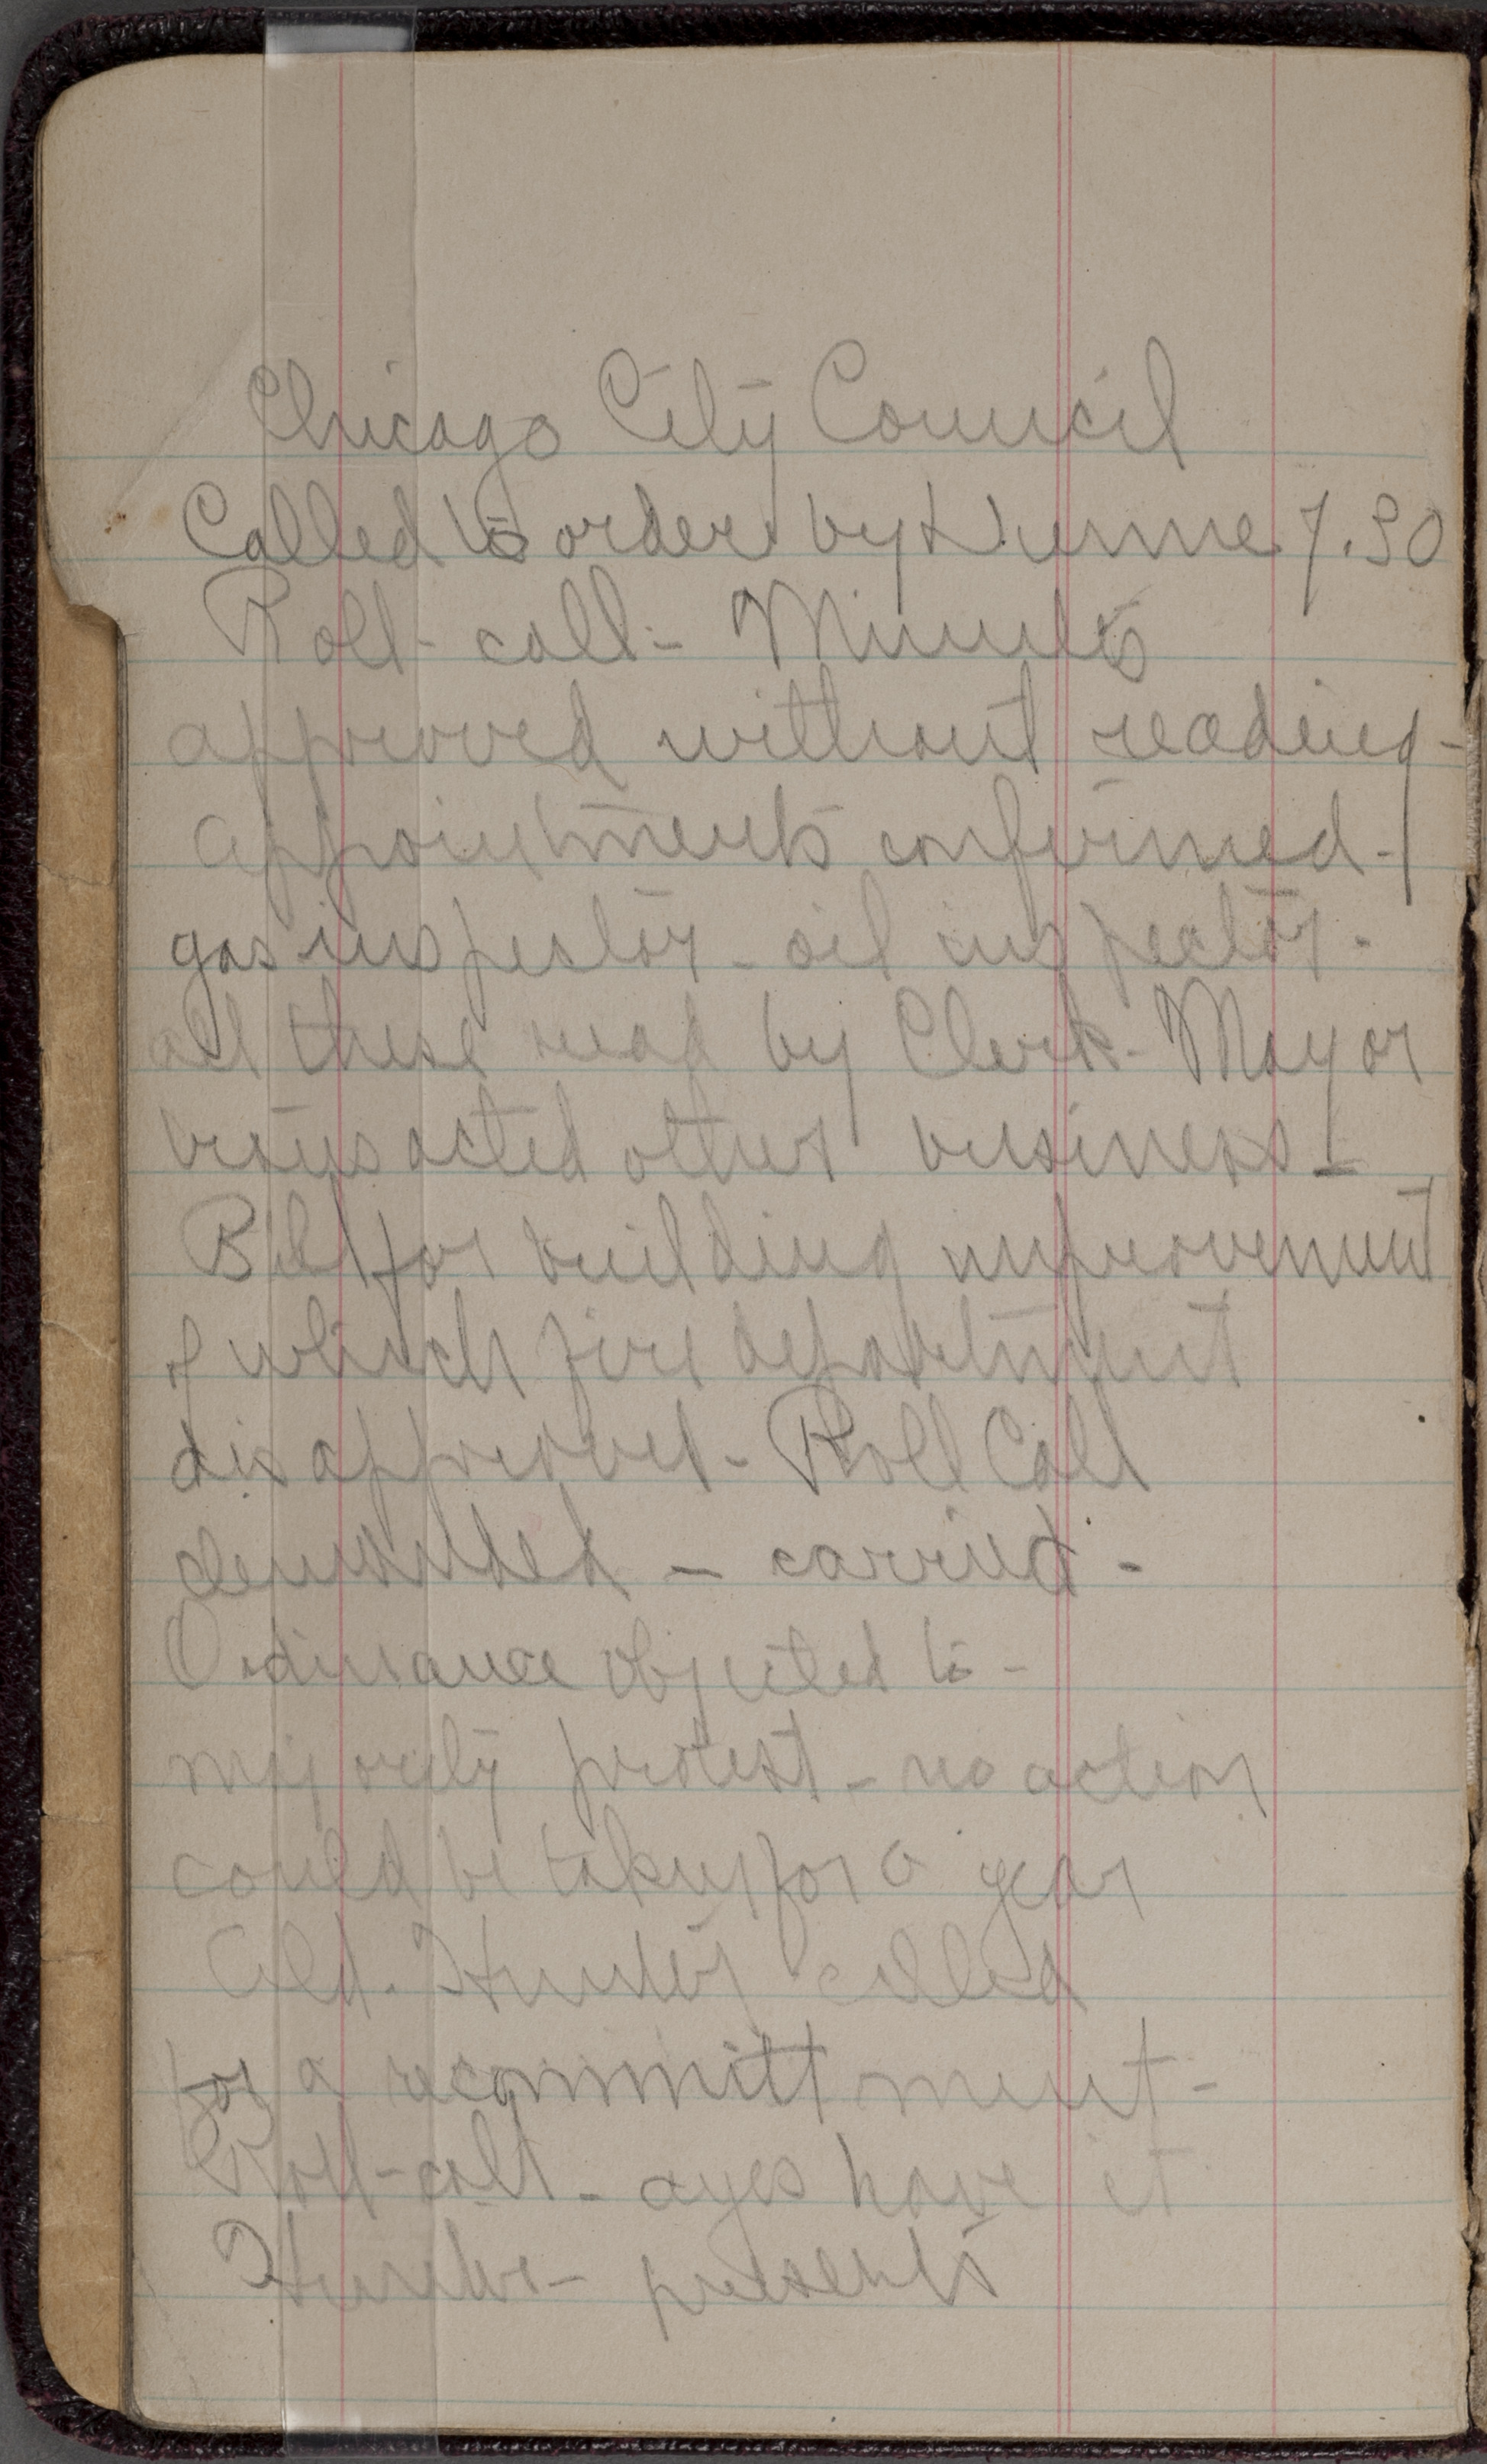 Chicago City Council
Called to order by Dunne 7.30
Roll-call - Minutes
approved without reading -
appointments confirmed -
gas inspector - oil inspector -
all these read by Clerk - Mayor
transacted other business -
Bill for building improvement
of which fire department
disapproved - Roll Call
demanded - carried -
Ordinance objected to -
majority protest - no action
could be taken for a year
Ald. Hunter called
for a recommittment -
Roll-call - ayes have it
Hunter - presents